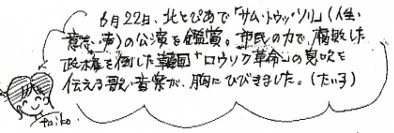 6月22日、北とぴあで「サム・トゥッ・ソリ」(人生・
意志・声)の公演を鑑賞。市民の力で、腐敗した
政権を倒した韓国「ロウソク革命」の息吹を
伝える歌・音楽が、胸にひびきました。(たい子)
Taiko